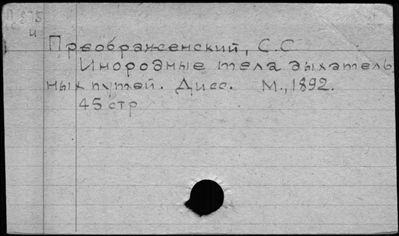 и
Преображенский, С.С
Инородные тела дыхатель
ных путей. Дисс. М., 1892.
45 стр